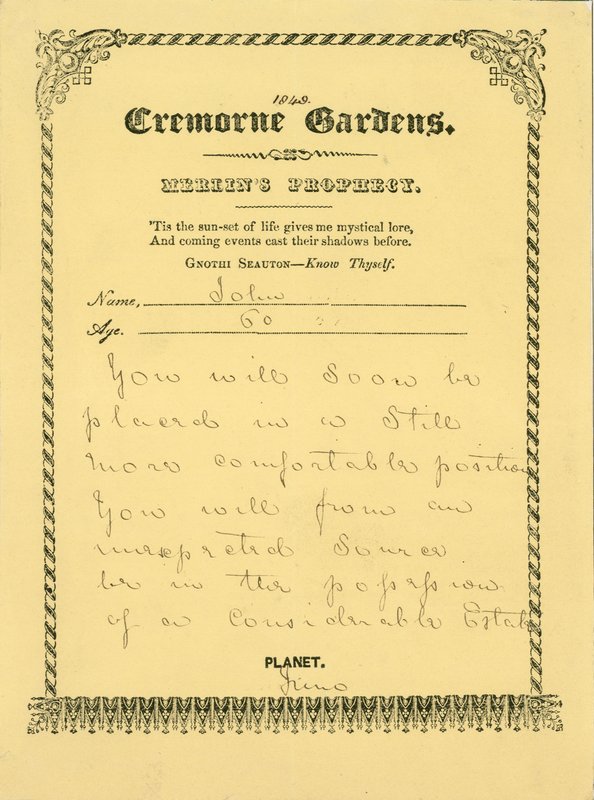 1849.
Cremorne Gardens.
MERLIN'S PROPHECY.
'Tis the sun-set of life gives me mystical lore,
And coming events cast their shadows before.
GNOTHI SEAUTON—Know Thyself.
Name, John
Age. 60
You will soon be
placed in a Still
more comfortable position
You will from an
unexpected Source
be in the poſseſsion
of a Considerable Estate
PLANET.
Juno